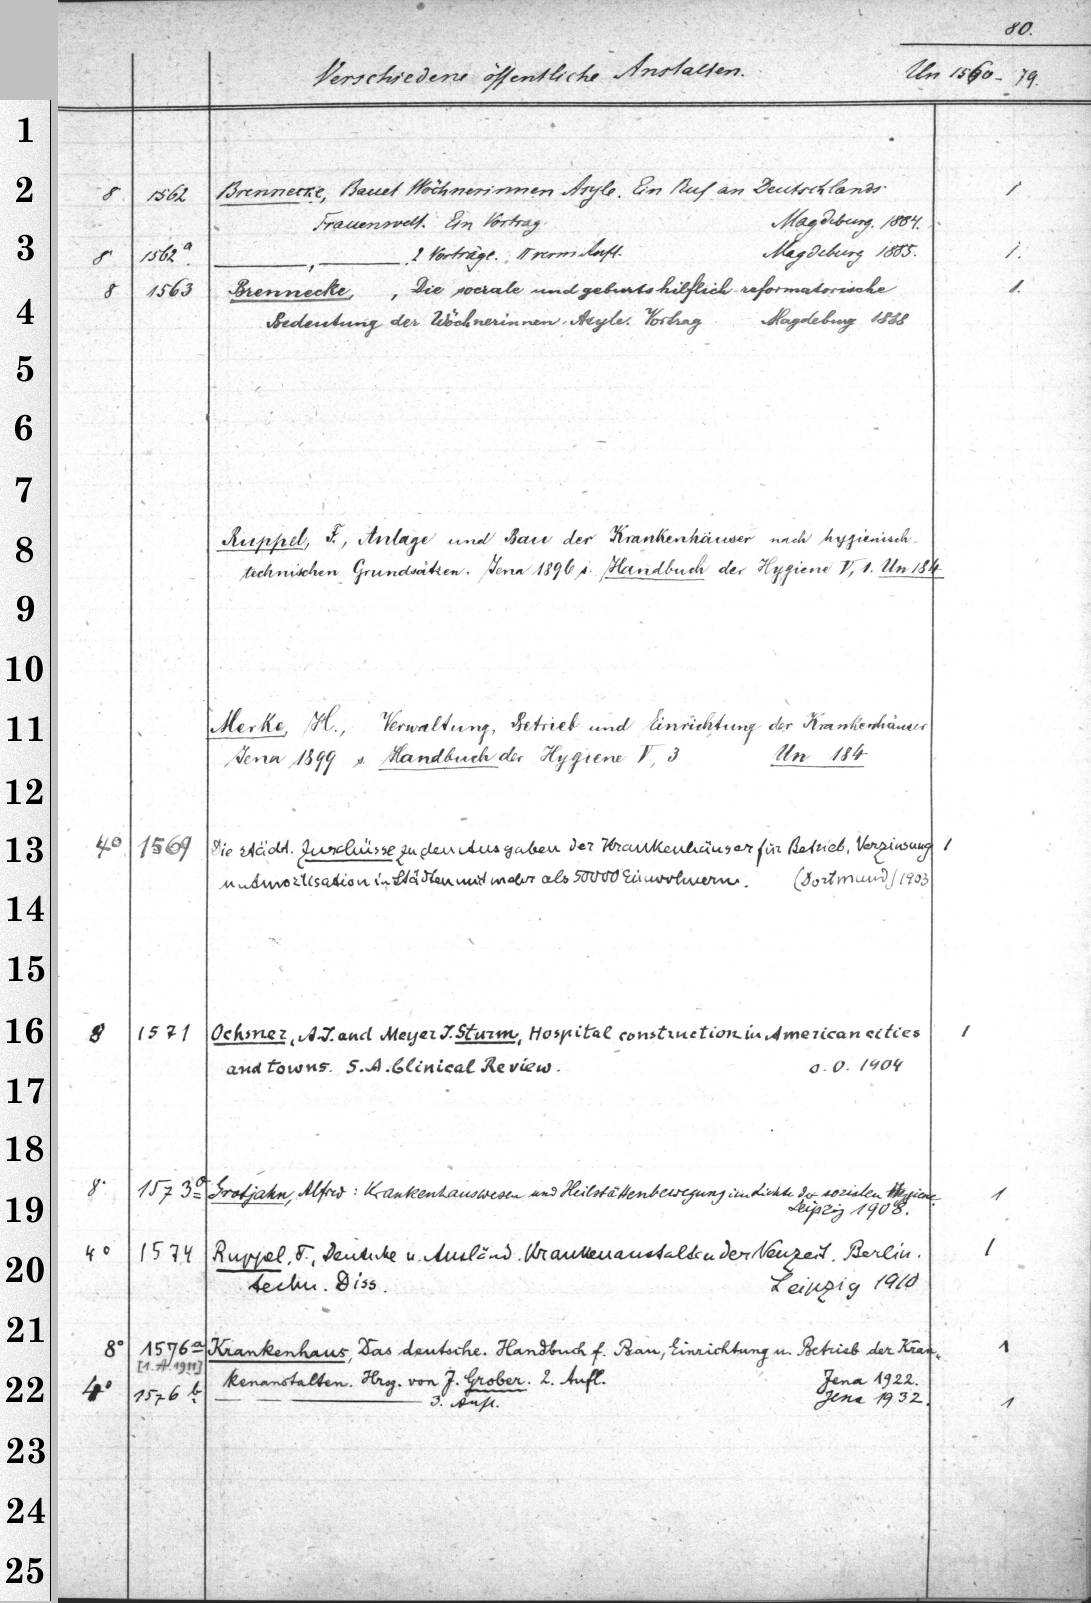 80.
Verschiedene öffentliche Anstalten. Un 1560-79.
1
2
8 1562 Brennecke, Bauet Wöchnerinnen Asyle. Ein Ruf an Deutschlands 1
Frauenwelt. Ein Vortrag Magdeburg. 1884.
3
8 1562a. ———, ——— 2 Vorträge. II verm Aufl. Magdeburg 1885. 1.
8 1563 Brennecke, , Die sociale und geburtshilflich-reformatorische 1.
4
Bedeutung der Wöchnerinnen-Asyle. Vortrag Magdeburg 1888
5
6
7
8
Ruppel, F., Anlage und Bau der Krankenhäuser nach hygienisch-
technischen Grundsätzen. Jena 1896 s. Handbuch der Hygiene V, 1. Un 184
9
10
11
Merke, H., Verwaltung, Betrieb und Einrichtung der Krankenhäuser
Jena 1899 s. Handbuch der Hygiene V, 3 Un 184
12
13
4° 1569 Die städt. Zuschüsse zu den Ausgaben der Krankenhäuser für Betrieb, Verzinsung 1
u. Amortisation in Städten mit mehr als 50000 Einwohnern. (Dortmund) 1903
14
15
16
8 1571 Ochsner, A.J. and Meyer J. Sturm, Hospital construction in American cities 1
and towns. S.A. Clinical Review. o.O. 1904
17
18
8° 1573a Grotjahn, Alfred: Krankenhauswesen und Heilstättenbewegung im Lichte der sozialen Hygiene. 1
19
Leipzig 1908.
4° 1574 Ruppel, F., Deutsche u. Ausländ. Krankenanstalten der Neuzeit. Berlin. 1
20
techn. Diss. Leipzig 1910
21
8° 1576a Krankenhaus, Das deutsche. Handbuch f. Bau, Einrichtung u. Betrieb der Kran- 1
[1.A.1911]
22
kenanstalten. Hrsg. von J. Grober. 2. Aufl. Jena 1922.
4° 1576b. — — ——— 3. Aufl. Jena 1932. 1
23
24
25